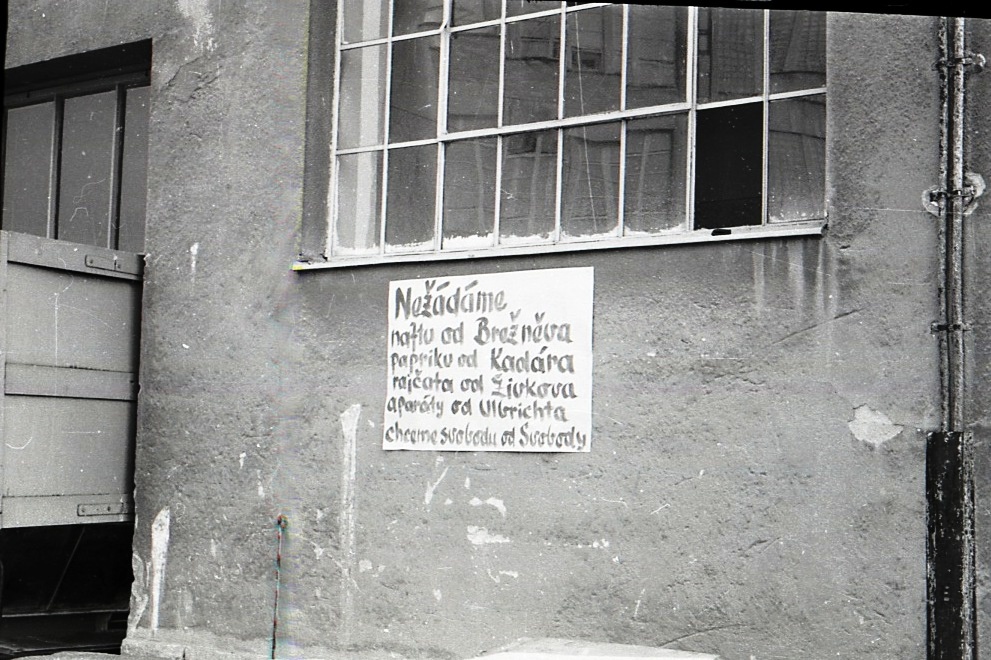 Nežádáme
naftu od Brežněva
papriku od Kadára
rajčata od Živkova
aparáty od Ulbrichta
chceme svobodu od Svobody